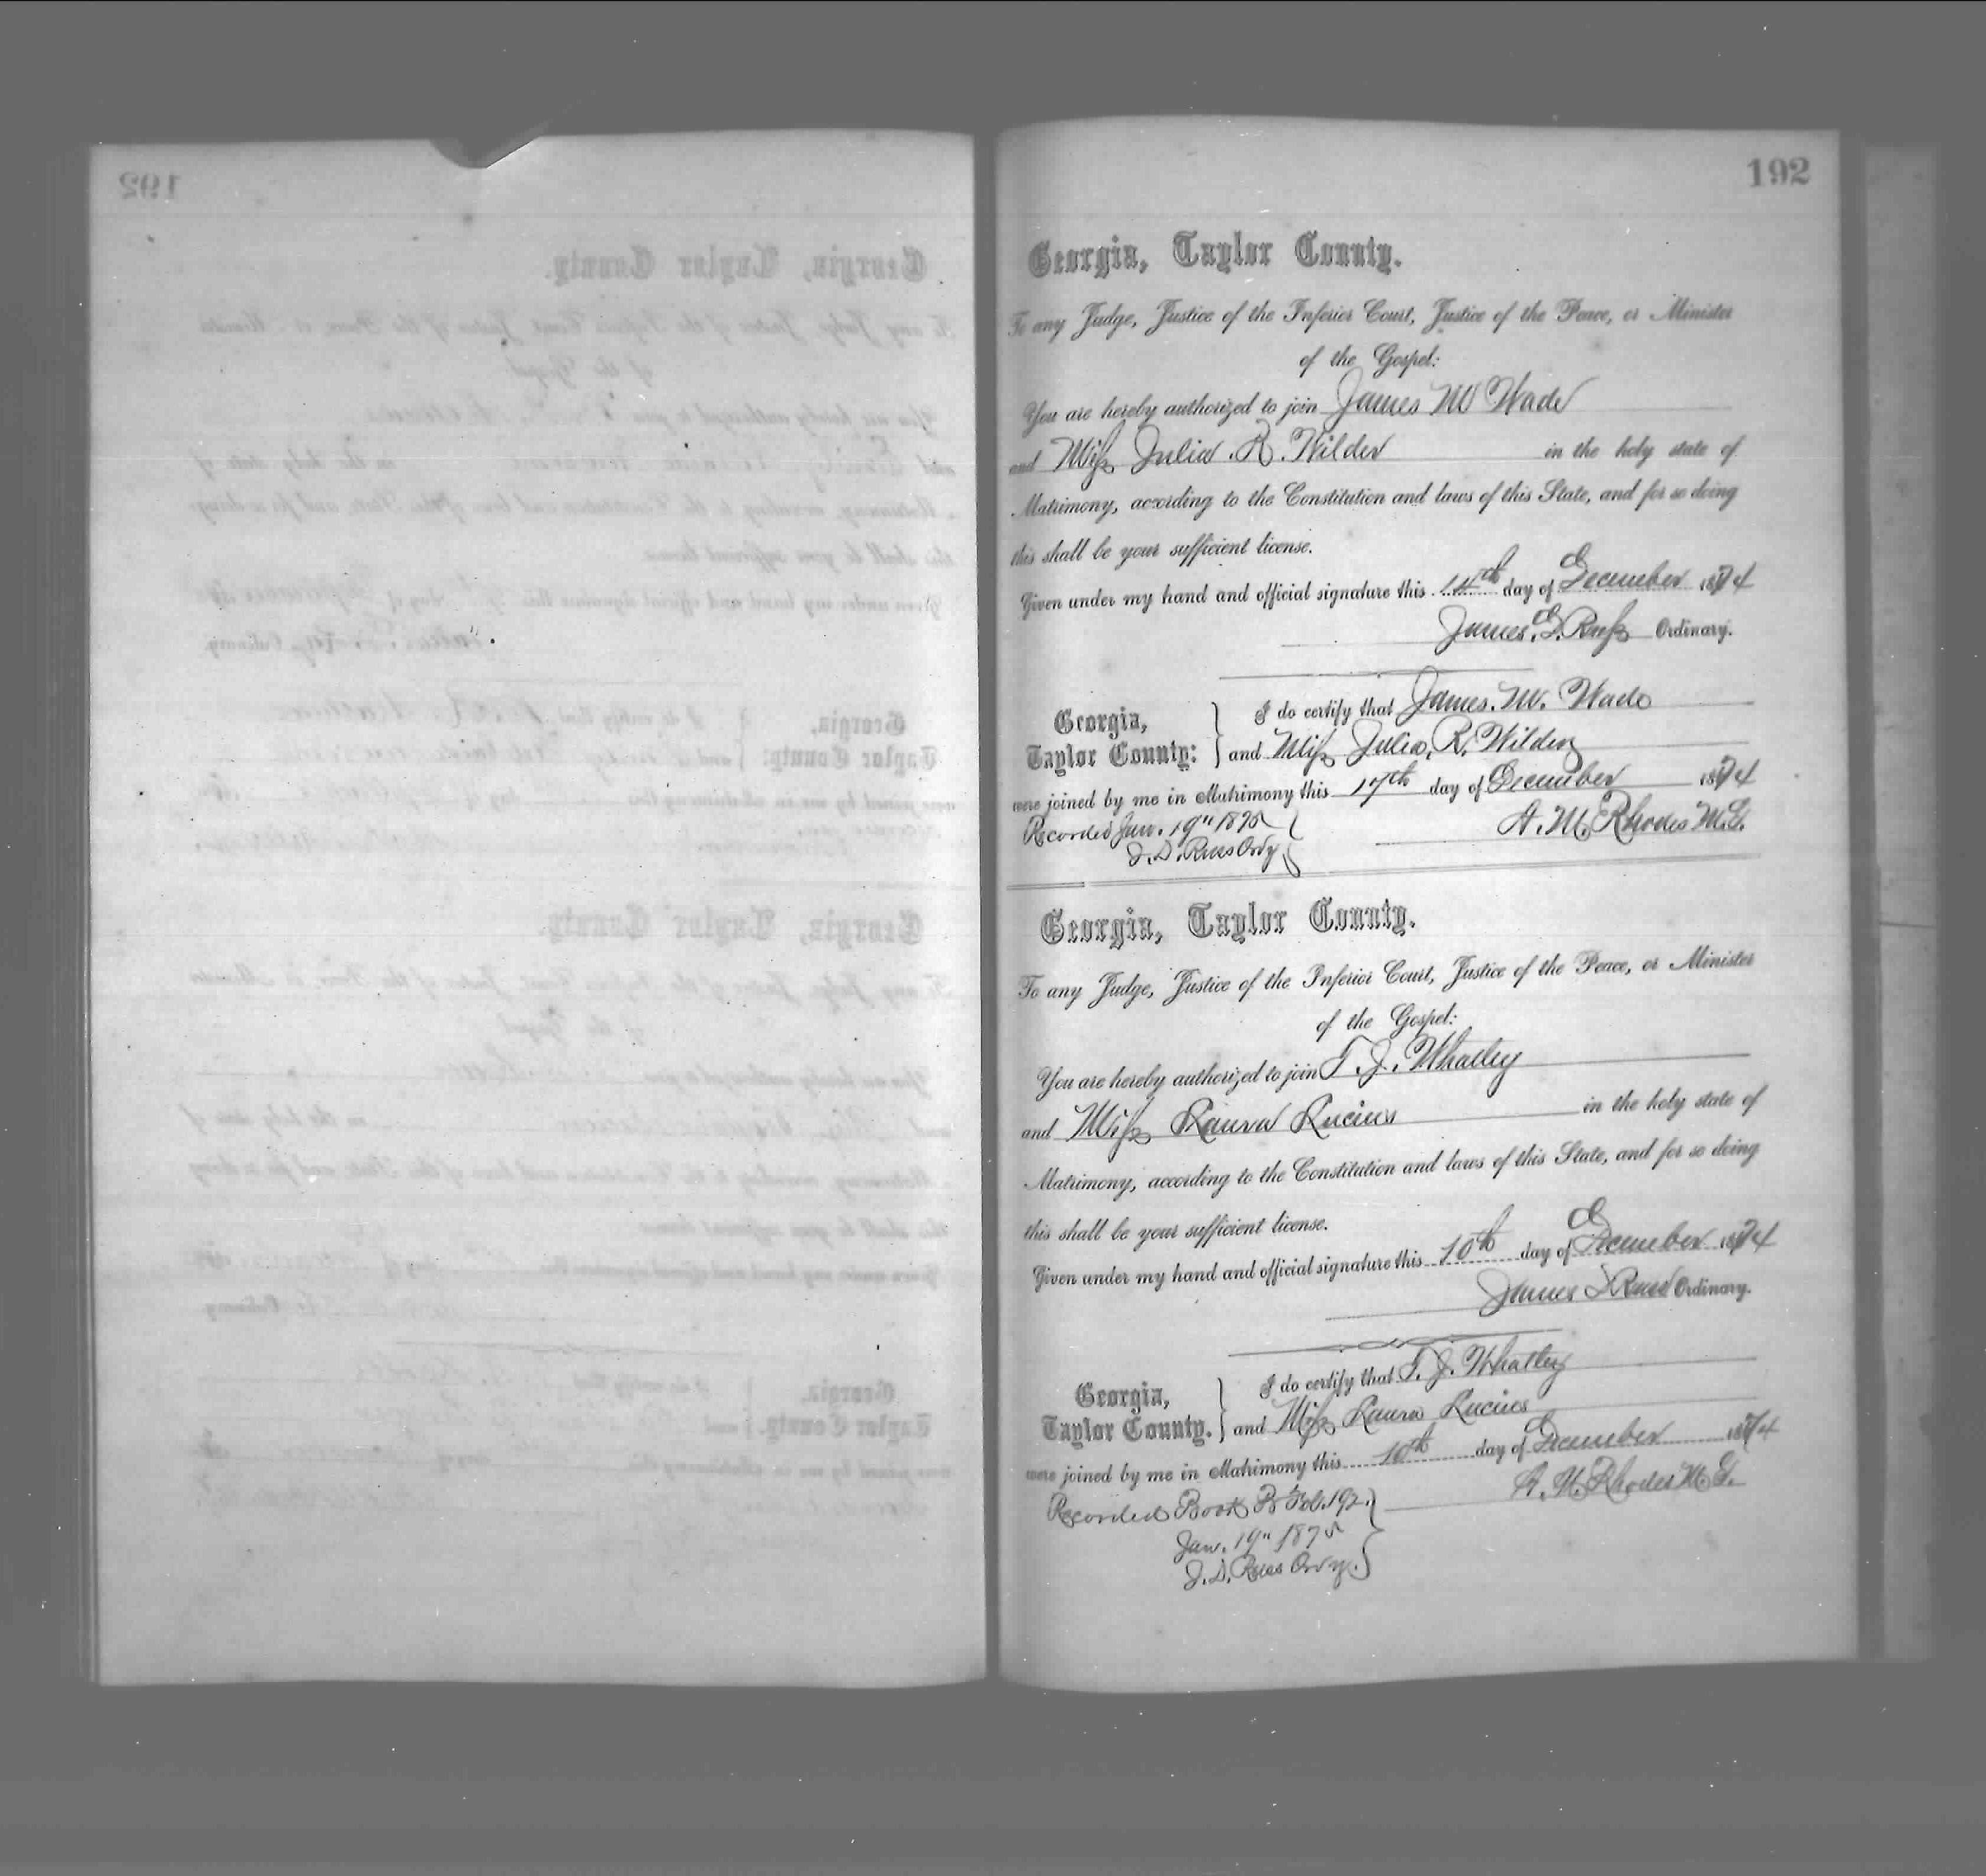 192
Georgia, Taylor County.
To any Judge, Justice of the Inferior Court, Justice of the Peace, or Minister
of the Gospel:
You are hereby authorized to join James W Wade
and Miss Julia R. Wilder in the holy state of
Matrimony, according to the Constitution and laws of this State, and for so doing
this shall be your sufficient license.
Given under my hand and official signature this 14th day of December 1874
James D. Russ Ordinary.
Georgia,
Taylor County:
I do certify that James. W. Wade
and Miss Julia, R. Wilder
were joined by me in Matrimony this 17th day of December 1874
A. M. Rhodes M.G.
Recorded Jan. 19" 1875
J. D. Russ Ordy
Georgia, Taylor County.
To any Judge, Justice of the Inferior Court, Justice of the Peace, or Minister
of the Gospel:
You are hereby authorized to join T. J. Whatley
and Miss Laura Lucius in the holy state of
Matrimony, according to the Constitution and laws of this State, and for so doing
this shall be your sufficient license.
Given under my hand and official signature this 10th day of December 1874
James D Russ Ordinary.
Georgia,
Taylor County.
I do certify that T. J. Whatley
and Miss Laura Lucius
were joined by me in Matrimony this 10th day of December 1874
A. M. Rhodes M.G.
Recorded Book B Fol. 192.
Jan. 19" 1875
J. D. Russ Ordy.